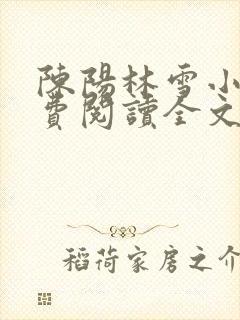 陳陽林雪小
費閱讀全文
稻荷家房之介